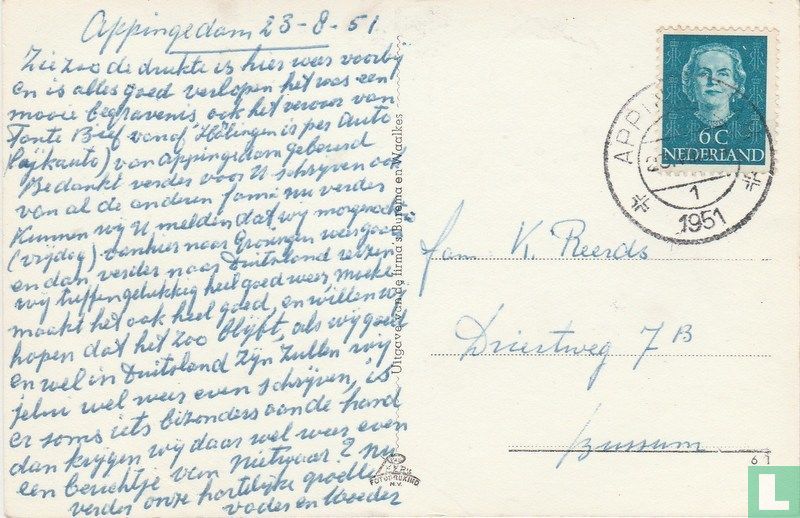 Appingedam 23-8-51
Zie zoo de drukte is hier weer voorbij
en is alles goed verlopen het was een
mooie begravenis ook het vervoer van
Tante Beef vanaf is per Auto
(Lijkauto) van Appingedam gebeurd
Bedankt verder voor U schrijven ook
van al de anderen fami nu verder
Kunnen wij U melden dat wij morgenocht
(vrijdag) vanhier naar Groningen
en dan verder naar Duitsland reizen
wij treffen gelukkig heel goed weer Moeke
maakt het ook heel goed, en willen wij
hopen dat het zoo blijft, als wij goed
en wel in Duitsland zijn zullen wij
jelui wel weer even schrijven, is
er soms iets bizonders aan de hand
dan krijgen wij daar wel weer even
een berichtje van nietwaar? nu
verder onze hartelijke groeten
vader en Moeder
Uitgave van de firma's Burema en Waalkes
FOTODRUKIND
N.V.
6 C
NEDERLAND
1
1951
Fam K. Reerds
Driestweg 7B
Bussum
L